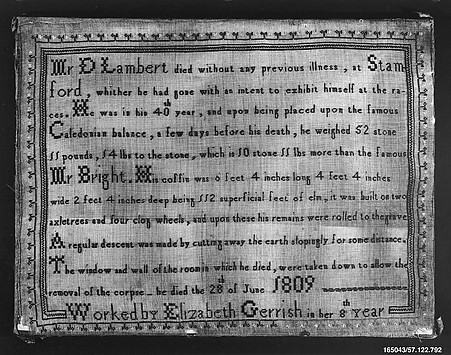 Mr D Lambert died without any previous illness, at Stam
ford, whither he had gone with an intent to exhibit himself at the ra-
ces. He was in his 40th year, and upon being placed upon the famous
Caledonian balance, a few days before his death, he weighed 52 stone
11 pounds, 14 lbs to the stone, which is 10 stone 11 lbs more than the famous
Mr Bright. His coffin was 6 feet 4 inches long 4 feet 4 inches
wide 2 feet 4 inches deep being 112 superficial feet of elm, it was built on two
axletrees and four clog wheels, and upon these his remains were rolled to the grave
A regular descent was made by cutting away the earth slopingly for some distance.
The window and wall of the room in which he died, were taken down to allow the
removal of the corpse_ he died the 28th of June 1809
Worked by Elizabeth Gerrish in her 8th Year
165043/57.122.792